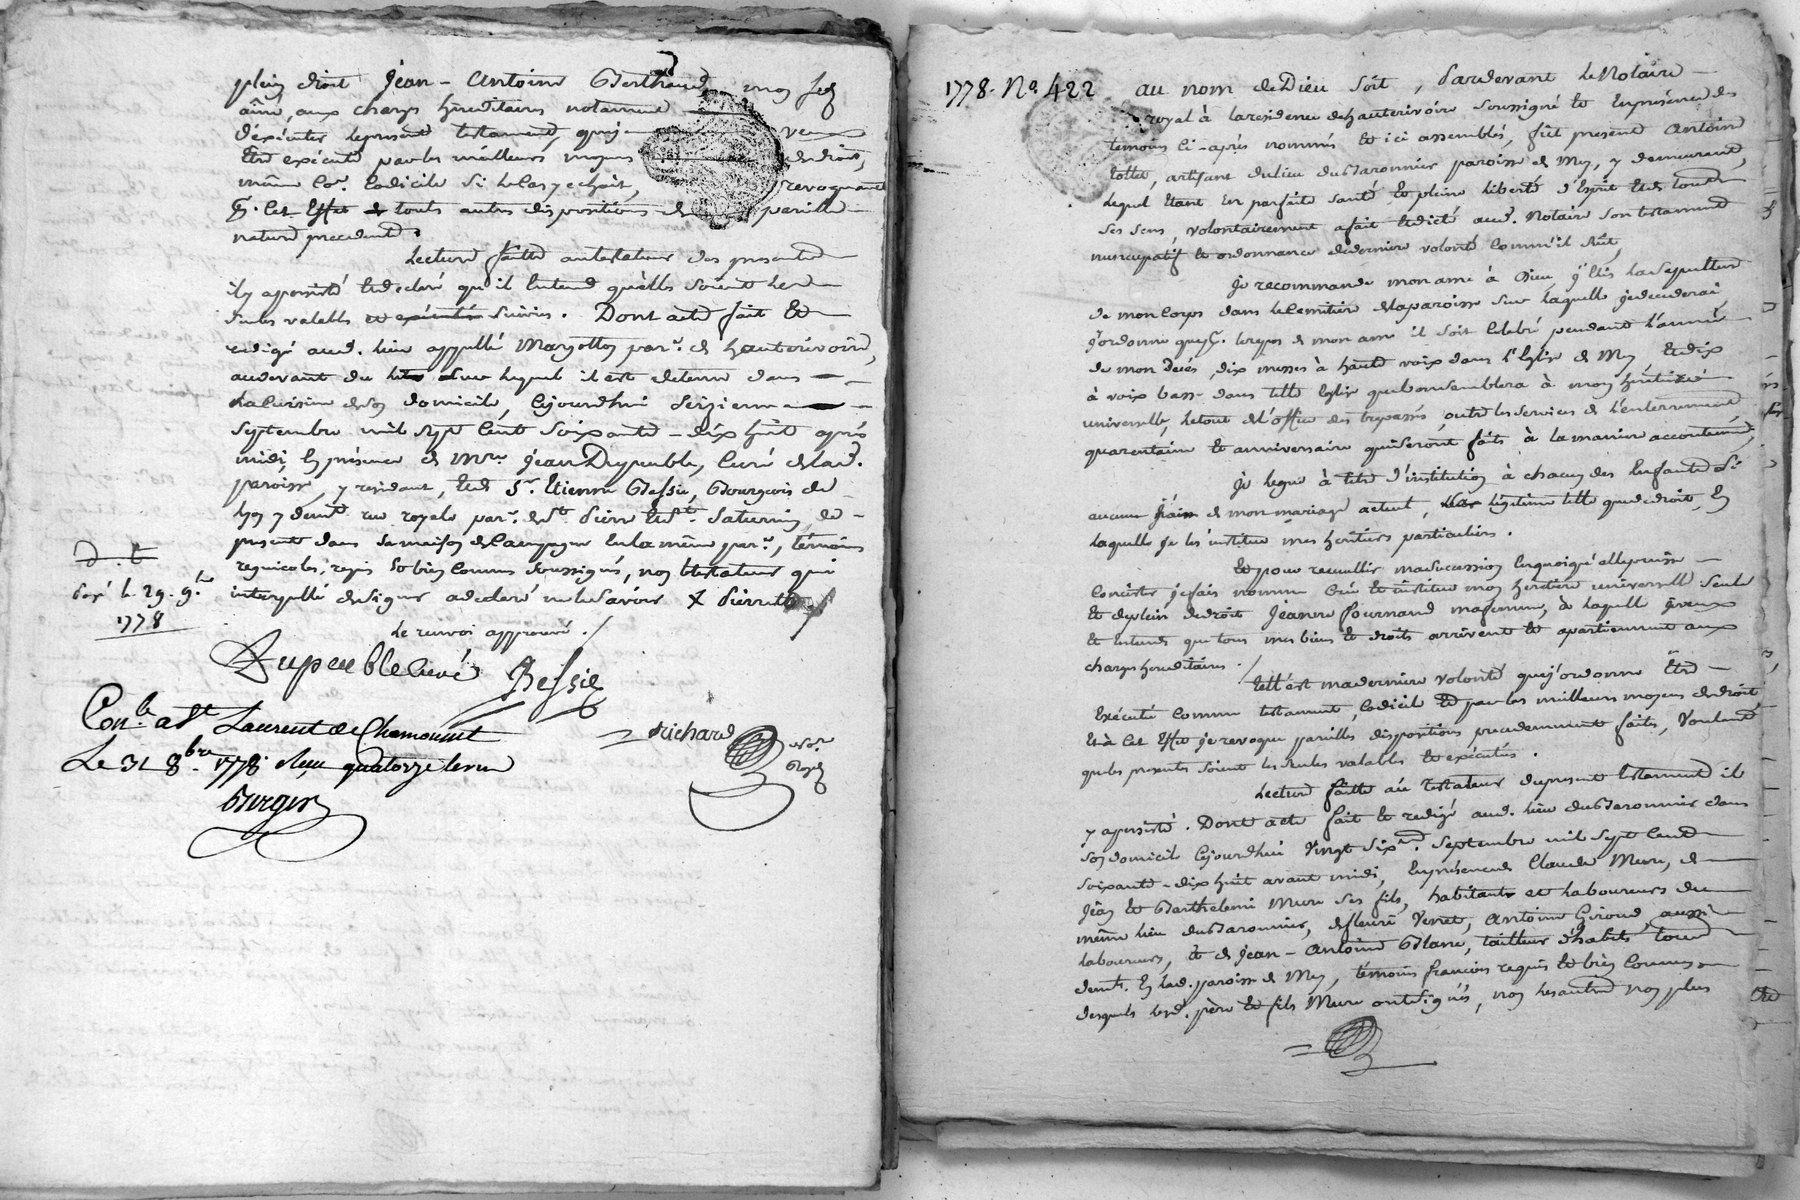 plein droit Jean-Antoine Berthaud, mon fils
aîné, aux charges héréditaires notamment
d'exécuter le présent testament, que je veux
Etre exécuté par les meilleurs moyens de droit,
même Coe. Codicile si le cas y echoit, revoquant
pr. Cet Effet touts autres dispositions de pareille
nature precedentes.
Lecture faitte au testateur des presentes
il y a persisté Et declaré qu'il Entend qu'elles soient les
seules valables et exécutés suivies. Dont acte fait Et
redigé aud. lieu appellé Margottes parse. de hauterivoire,
audevant du lit sur lequel il est detenu dans
La Cuisine de son domicile, Cejourdhui seizieme
septembre mil sept Cent soixante-dix huit après
midi, En présence de Mre. Jean Dupeuble, Curé de lad.
paroisse, y residant, Et de Sr. Etienne Bessie, Bourgeois de
Lyon y demt. rue royale parse. de St. Pierre Et St. Saturnin, de
present dans sa maison de Campagne En la même parse., témoins
regnicoles, requis Et bien Connus soussignés, non le testateur qui
interpellé de signer a declaré ne le savoir
Le renvoi approuvé.
D. E
Exp. le 29. 9bre
1778
Dupeuble curé Bessie
Conlé. a St. Laurent de Chamousset
Le 31 8bre. 1778. Reçu quatorze
Burger
Richard Nore. Royal
1778. No. 422 au nom de Dieu soit, Pardevant Le Notaire
royal à la residence de hauterivoire soussigné Et En présence des
temoins Ci-après nommés Et ici assemblés, fut present Antoine
Collet, artisant du lieu du Baronnier paroisse de Mey, y demeurant,
Lequel Etant En parfaite santé Et pleine liberté d'Esprit Et de touts
ses sens, volontairement a fait Et dicté aud. Notaire son testament
nuncupatif Et ordonnance de derniere volonté Comme il suit,
Je recommande mon ame à Dieu, j'Elis La sepulture
de mon Corps dans le Cemitiere de la paroisse sur laquelle je decederai,
j'ordonne que pr. le repos de mon ame il soit Celebré pendant l'année
de mon Decés, dix messes à haute voix dans l'Eglise de Mey Et dix
à voix basse dans telle Eglise que bon semblera à mon héritiere
universelle, le tout de l'office des trepassés, outre les services de l'enterrement,
quarentaine Et anniversaire qui seront faits à la maniere accoutumée,
Je legue à titre d'institution à chacun des Enfants Si
aucun j'ai de mon mariage actuel, legitime telle que de droit, En
laquelle je les institue mes heritiers particuliers.
Et pour recueillir ma succession En quoi qu'elle puisse
Consister, je fais nomme Crée Et institue mon heritiere universelle seule
Et de plein de droit Jeanne fournand ma femme, à laquelle je veux
Et Entends que tous mes biens Et droits arrivent Et apartiennent aux
charges hereditaires.
telle est ma derniere volonté que j'ordonne Etre
Exécuté comme testament, Codicil Et par les meilleurs moyens de droit,
Et à Cet Effet je revoque pareilles dispositions precedemment faites, Voulant
que les presentes soient les seules valables Et exécutés.
Lecture faitte au testateur du present testament il
y a persisté. Dont acte fait Et redigé aud. lieu du Baronnier dans
son domicile Cejourdhui Vingt sixe. Septembre mil sept Cent
soixante-dix huit avant midi, En présence de Claude Mure, de
Jean Et Barthelemi Mure ses fils, habitants et laboureurs du
même lieu du Baronnier, de fleuri Venet, Antoine Giroud, aussi
laboureurs, Et de Jean-Antoine Blanc, tailleur d'habits touts
demts. En lad. paroisse de Mey, témoins françois requis Et bien Connus
desquels lesd. père Et fils Mure ont signés, non les autres non plus